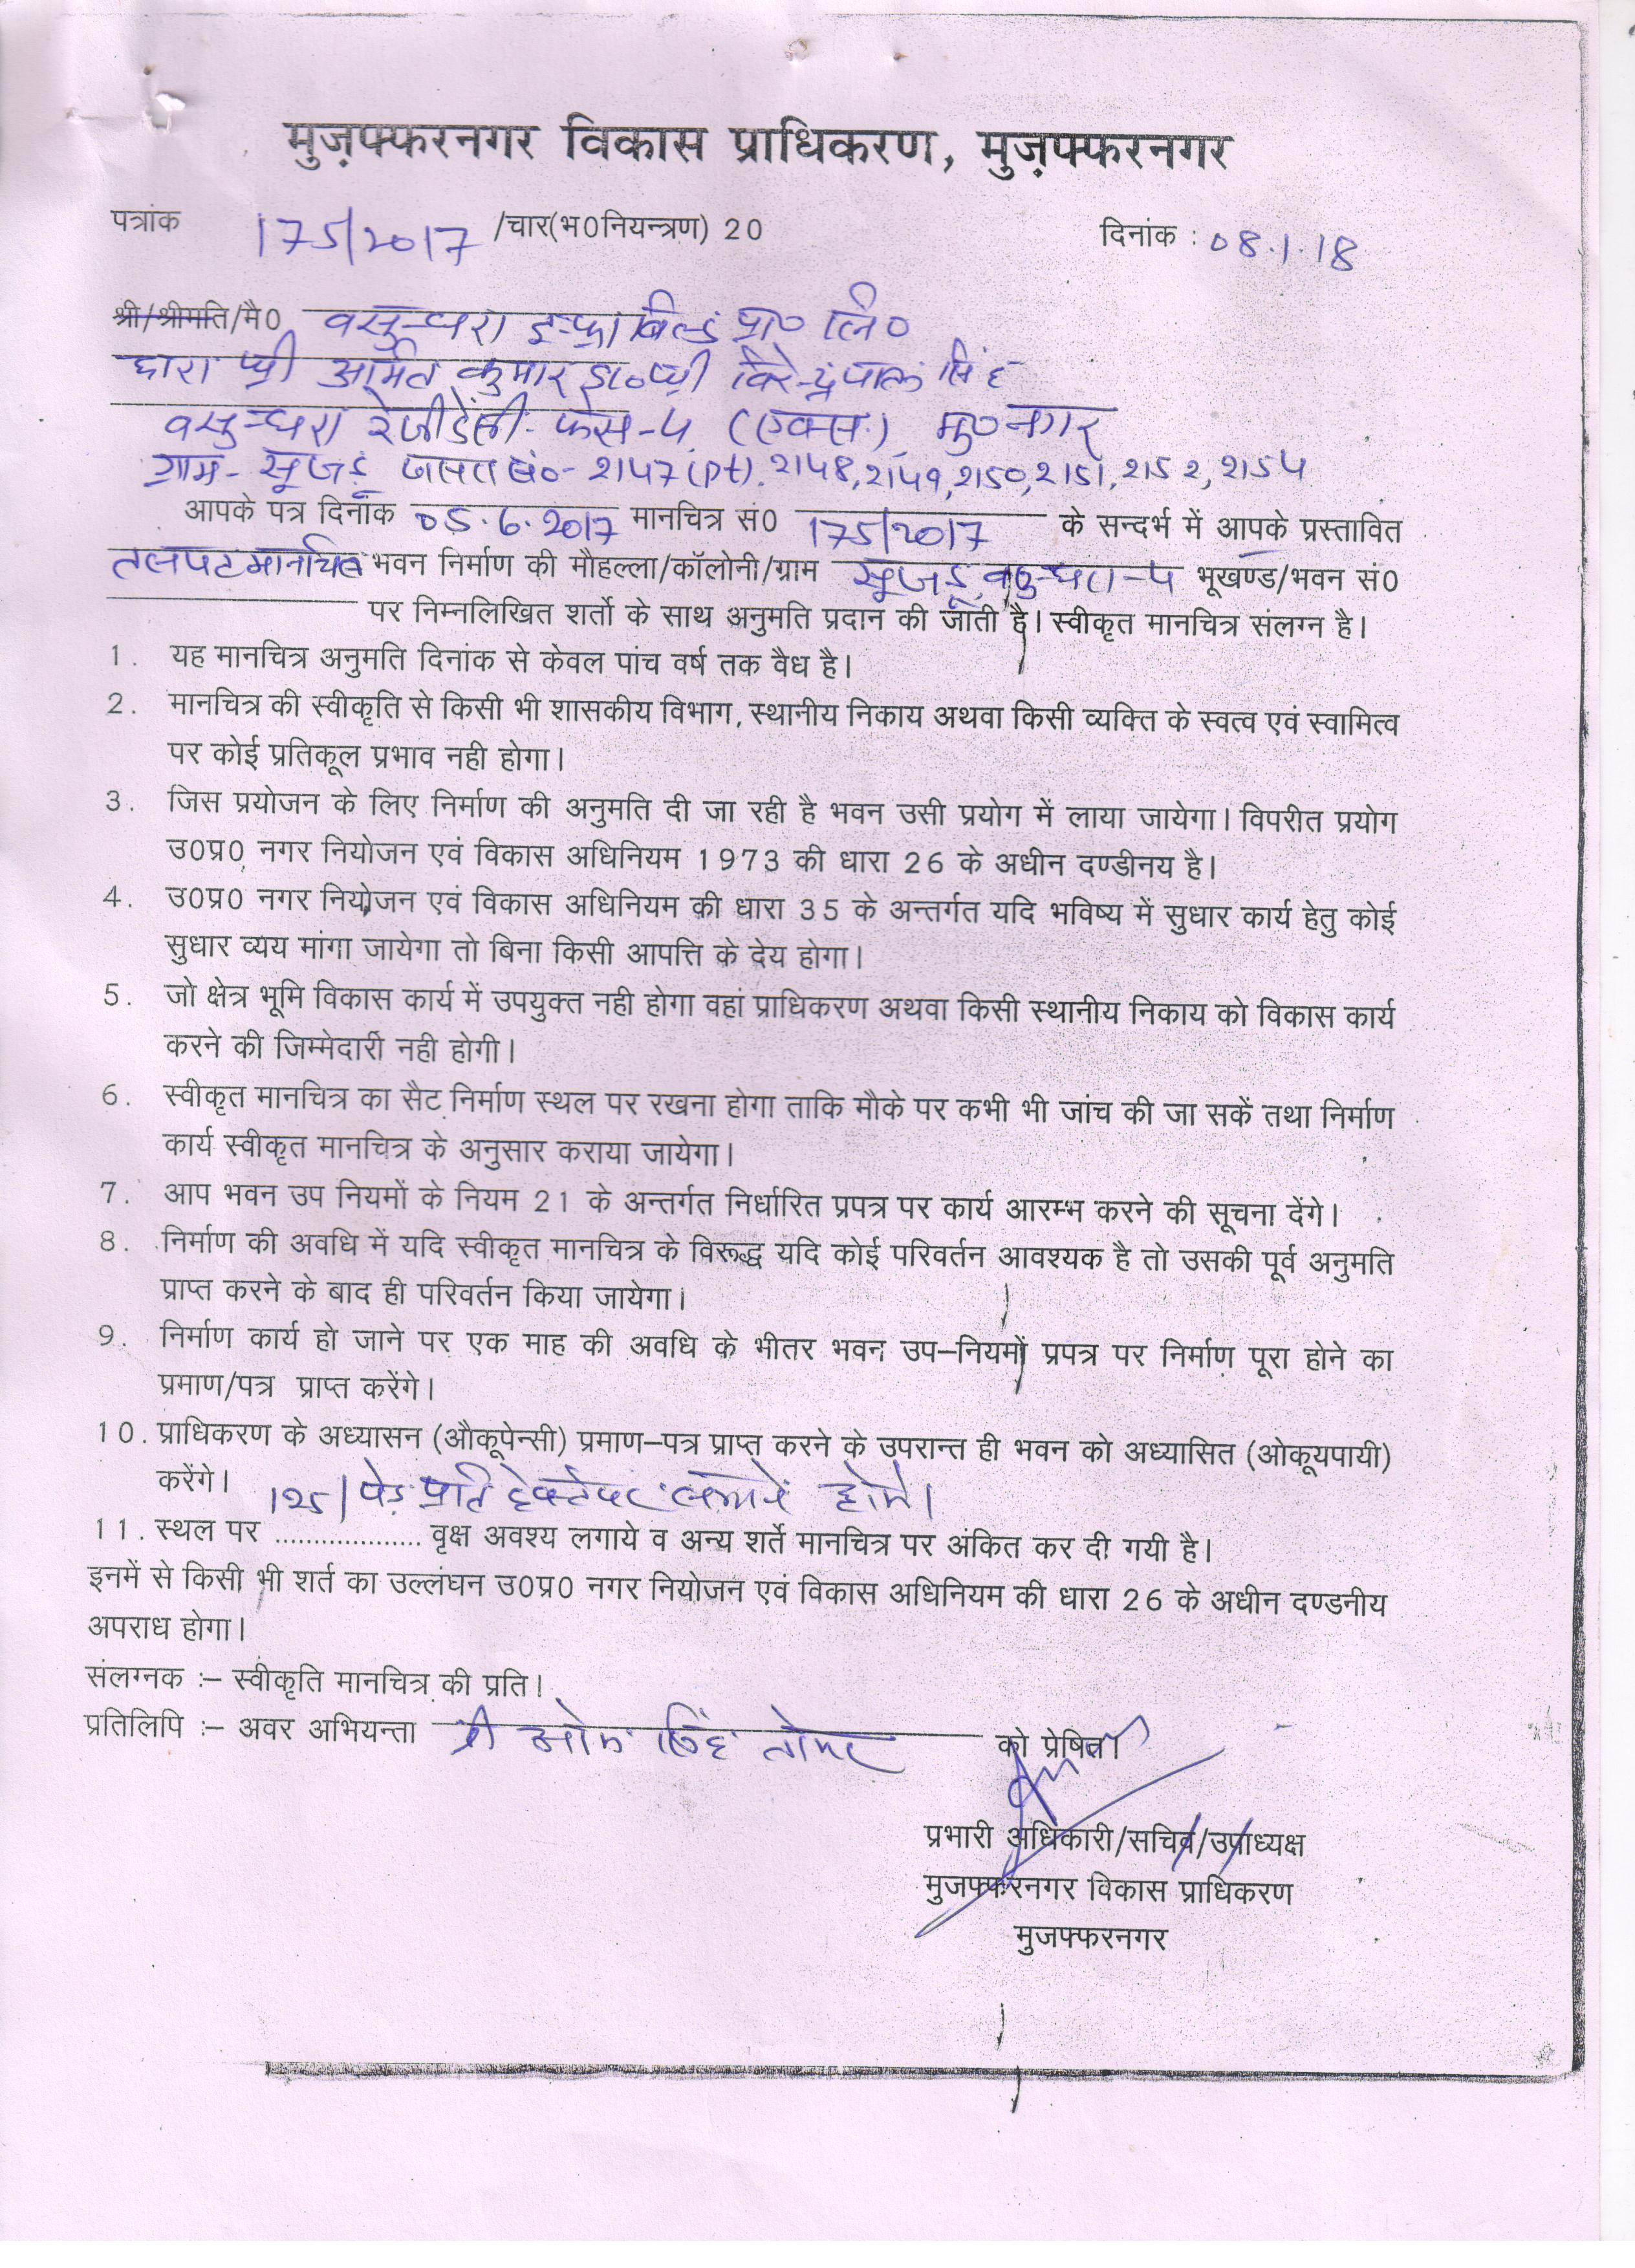 मुज़फ्फरनगर विकास प्राधिकरण, मुज़फ्फरनगर
पत्रांक 175/2017 /चार(भ0नियन्त्रण) 20 दिनांक : 08.1.18
श्री/श्रीमति/मै0 वसुन्धरा इन्फ्रा बिल्ड प्रा० लि०
द्वारा श्री अमित कुमार श्री विरेन्द्रपाल सिंह
वसुन्धरा रेजीडेंसी फेस-५ (एक्स.) मु०नगर
ग्राम- सूजडू खसरा सं०- २147(Pt). २148, २149, २150, २151, २15२, २15५
आपके पत्र दिनांक 05.6.2017 मानचित्र सं0 175/2017 के सन्दर्भ में आपके प्रस्तावित
तलपट मानचित्र भवन निर्माण की मौहल्ला/कॉलोनी/ग्राम सूजडू, वसुन्धरा-५ भूखण्ड/भवन सं0
पर निम्नलिखित शर्तो के साथ अनुमति प्रदान की जाती है। स्वीकृत मानचित्र संलग्न है।
1. यह मानचित्र अनुमति दिनांक से केवल पांच वर्ष तक वैध है।
2. मानचित्र की स्वीकृति से किसी भी शासकीय विभाग, स्थानीय निकाय अथवा किसी व्यक्ति के स्वत्व एवं स्वामित्व
पर कोई प्रतिकूल प्रभाव नही होगा।
3. जिस प्रयोजन के लिए निर्माण की अनुमति दी जा रही है भवन उसी प्रयोग में लाया जायेगा। विपरीत प्रयोग
उ0प्र0 नगर नियोजन एवं विकास अधिनियम 1973 की धारा 26 के अधीन दण्डीनय है।
4. उ0प्र0 नगर नियोजन एवं विकास अधिनियम की धारा 35 के अन्तर्गत यदि भविष्य में सुधार कार्य हेतु कोई
सुधार व्यय मांगा जायेगा तो बिना किसी आपत्ति के देय होगा।
5. जो क्षेत्र भूमि विकास कार्य में उपयुक्त नही होगा वहां प्राधिकरण अथवा किसी स्थानीय निकाय को विकास कार्य
करने की जिम्मेदारी नही होगी।
6. स्वीकृत मानचित्र का सैट निर्माण स्थल पर रखना होगा ताकि मौके पर कभी भी जांच की जा सकें तथा निर्माण
कार्य स्वीकृत मानचित्र के अनुसार कराया जायेगा।
7. आप भवन उप नियमों के नियम 21 के अन्तर्गत निर्धारित प्रपत्र पर कार्य आरम्भ करने की सूचना देंगे।
8. निर्माण की अवधि में यदि स्वीकृत मानचित्र के विरूद्ध यदि कोई परिवर्तन आवश्यक है तो उसकी पूर्व अनुमति
प्राप्त करने के बाद ही परिवर्तन किया जायेगा।
9. निर्माण कार्य हो जाने पर एक माह की अवधि के भीतर भवन उप–नियमों प्रपत्र पर निर्माण पूरा होने का
प्रमाण/पत्र प्राप्त करेंगे।
10. प्राधिकरण के अध्यासन (औकूपेन्सी) प्रमाण–पत्र प्राप्त करने के उपरान्त ही भवन को अध्यासित (ओकूयपायी)
करेंगे।
125/ पेड़ प्रति हेक्टेयर लगाने होंगे।
11. स्थल पर ................... वृक्ष अवश्य लगाये व अन्य शर्ते मानचित्र पर अंकित कर दी गयी है।
इनमें से किसी भी शर्त का उल्लंघन उ0प्र0 नगर नियोजन एवं विकास अधिनियम की धारा 26 के अधीन दण्डनीय
अपराध होगा।
संलग्नक :– स्वीकृति मानचित्र की प्रति।
प्रतिलिपि :– अवर अभियन्ता श्री ओम सिंह तोमर को प्रेषित।
प्रभारी अधिकारी/सचिव/उपाध्यक्ष
मुजफ्फरनगर विकास प्राधिकरण
मुजफ्फरनगर